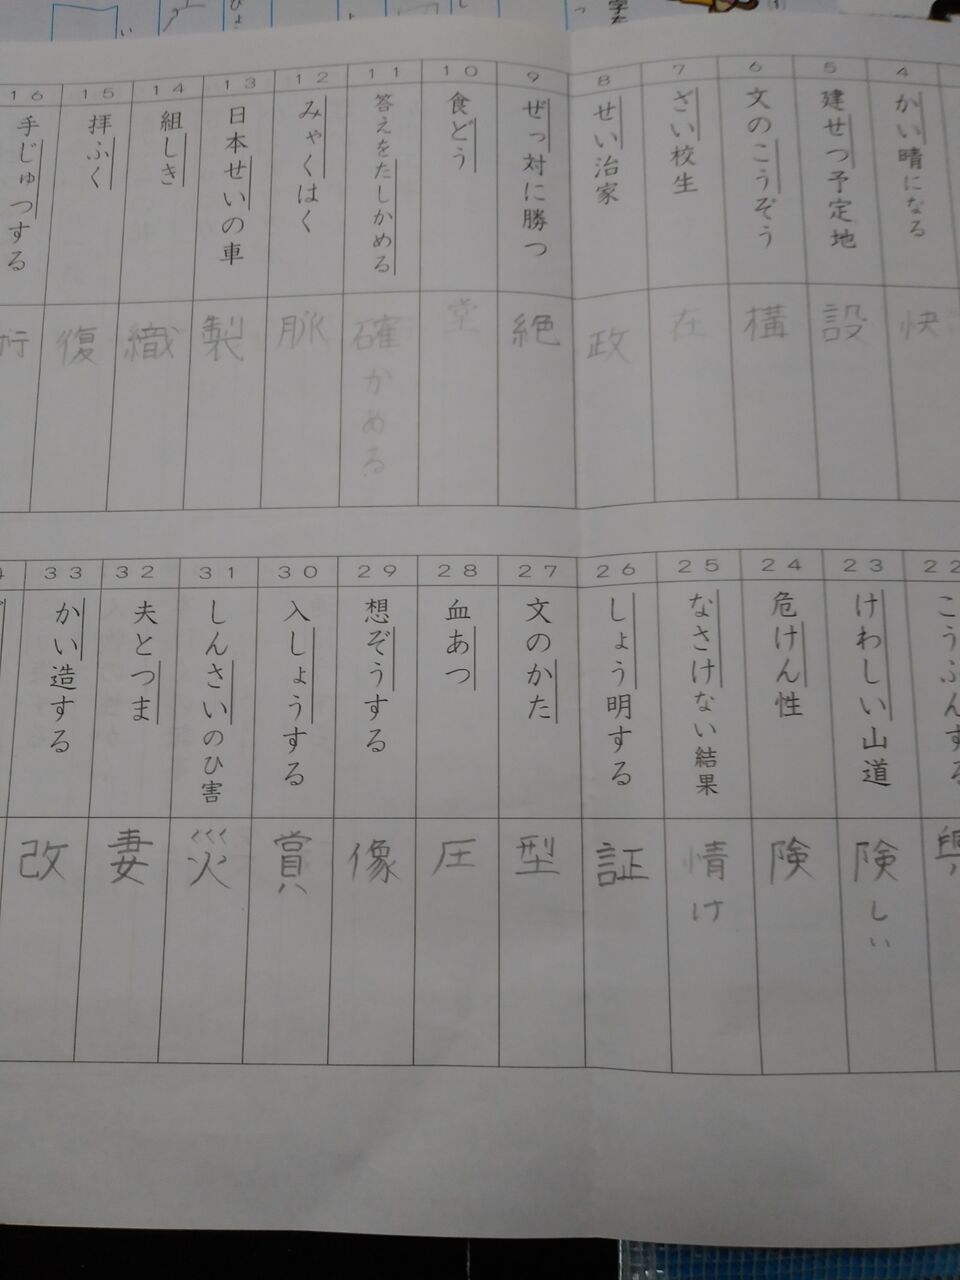 4
かい晴になる
快
5
建せつ予定地
設
6
文のこうぞう
構
7
ざい校生
在
8
せい治家
政
9
ぜっ対に勝つ
絶
10
食どう
堂
11
答えをたしかめる
確かめる
12
みゃくはく
脈
13
日本せいの車
製
14
組しき
織
15
拝ふく
復
16
手じゅつする
術
22
こうふんする
興
23
けわしい山道
険しい
24
危けん性
険
25
なさけない結果
情け
26
しょう明する
証
27
文のかた
型
28
血あつ
圧
29
想ぞうする
像
30
入しょうする
賞
31
しんさいのひ害
災
32
夫とつま
妻
33
かい造する
改